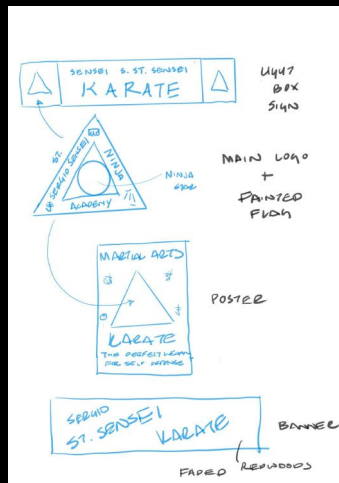 SENSEI S. ST. SENSEI
KARATE
LIGHT
BOX
SIGN
ST. SERGIO SENSEI
NINJA
ACADEMY
NINJA
STAR
MAIN LOGO
+
PAINTED
FLAG
MARTIAL ARTS
KARATE
THE PERFECT WEAPON
FOR SELF DEFENSE
POSTER
SERGIO
ST. SENSEI
KARATE
BANNER
FADED REDWOODS